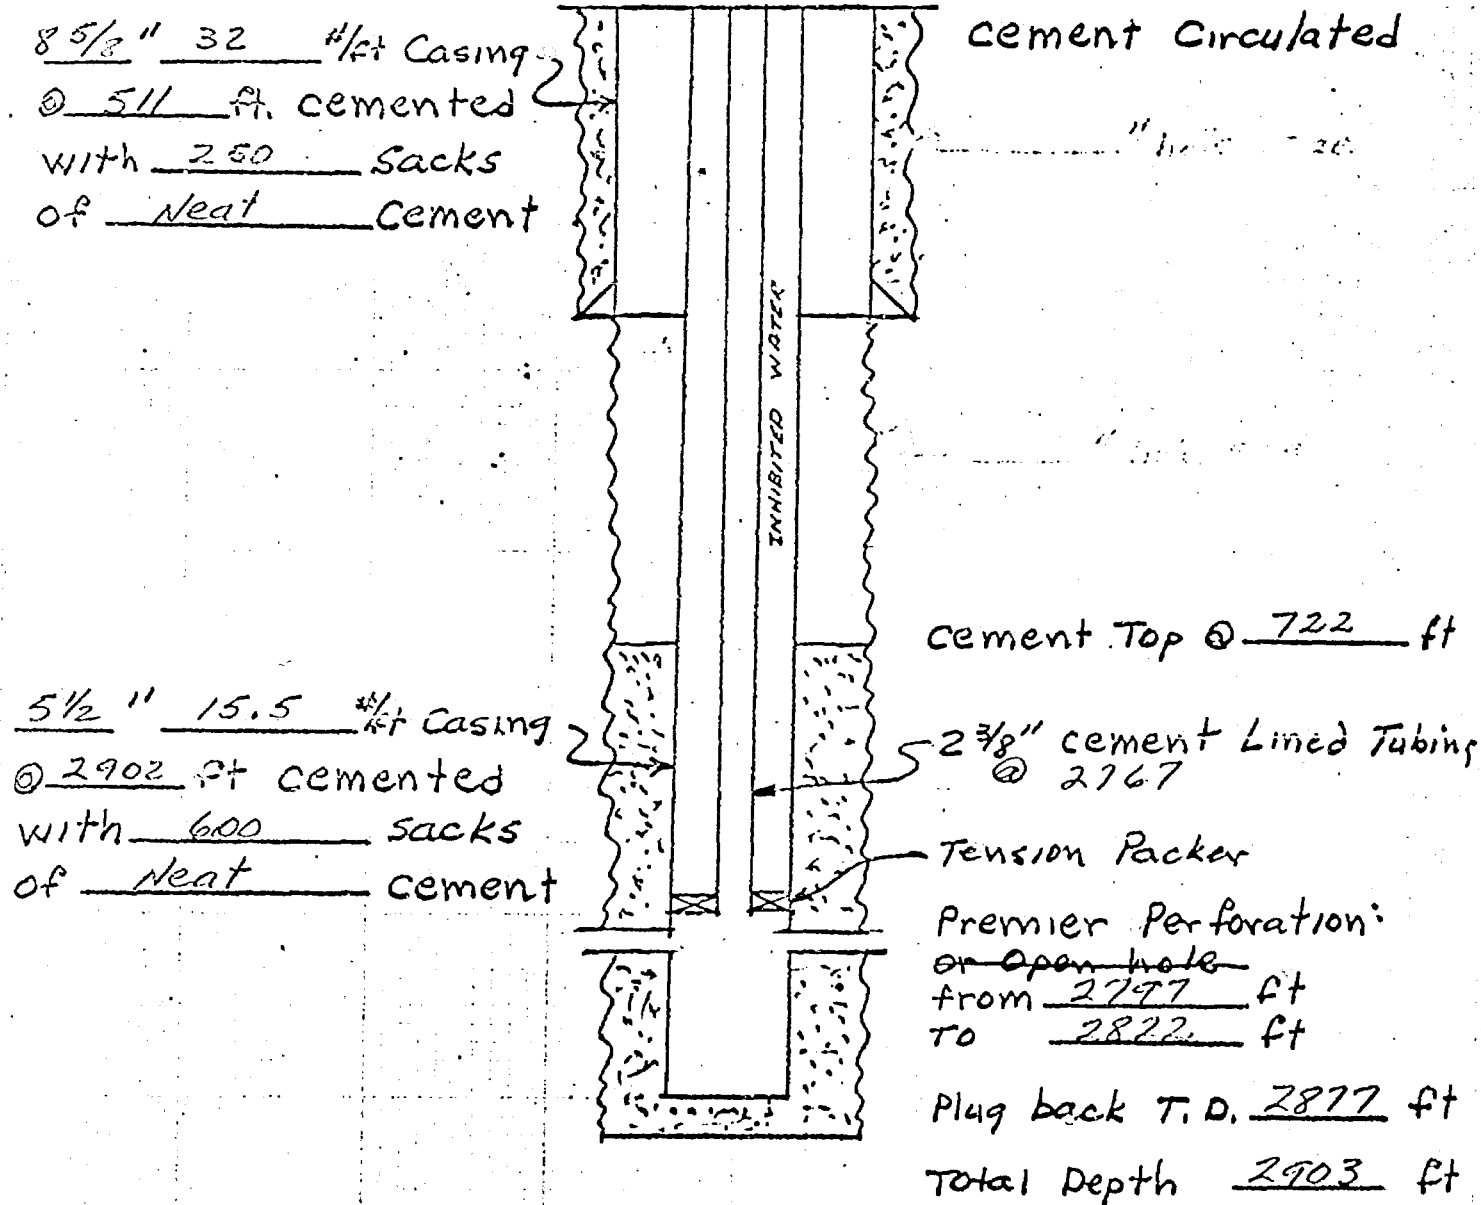 8 5/8 " 32 #/ft Casing
@ 511 ft. cemented
with 250 Sacks
of Neat Cement
Cement Circulated
INHIBITED WATER
Cement Top @ 722 ft
5 1/2 " 15.5 #/ft Casing
@ 2902 ft cemented
with 600 sacks
of Neat cement
2 3/8" cement Lined Tubing
@ 2767
Tension Packer
Premier Perforation:
or Open hole
from 2797 ft
TO 2822 ft
Plug back T.D. 2877 ft
Total Depth 2903 ft